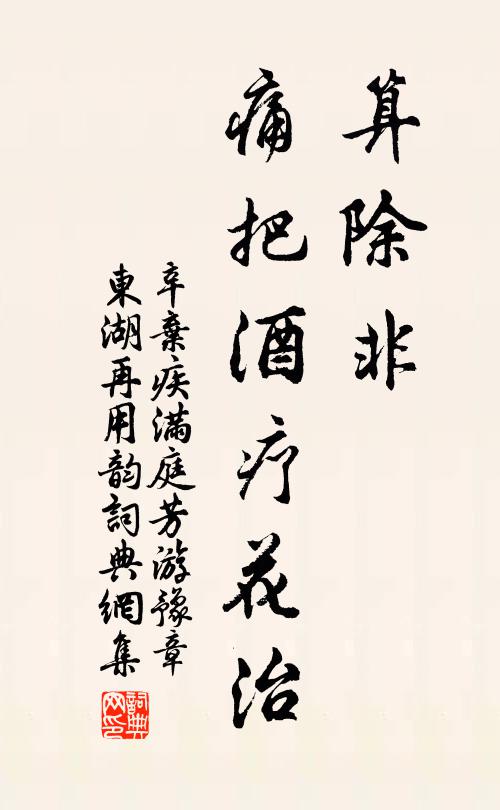 算除非
痛把酒疗花治
辛棄疾滿庭芳游豫章
東湖再用韵詞典網集
詞典
网印